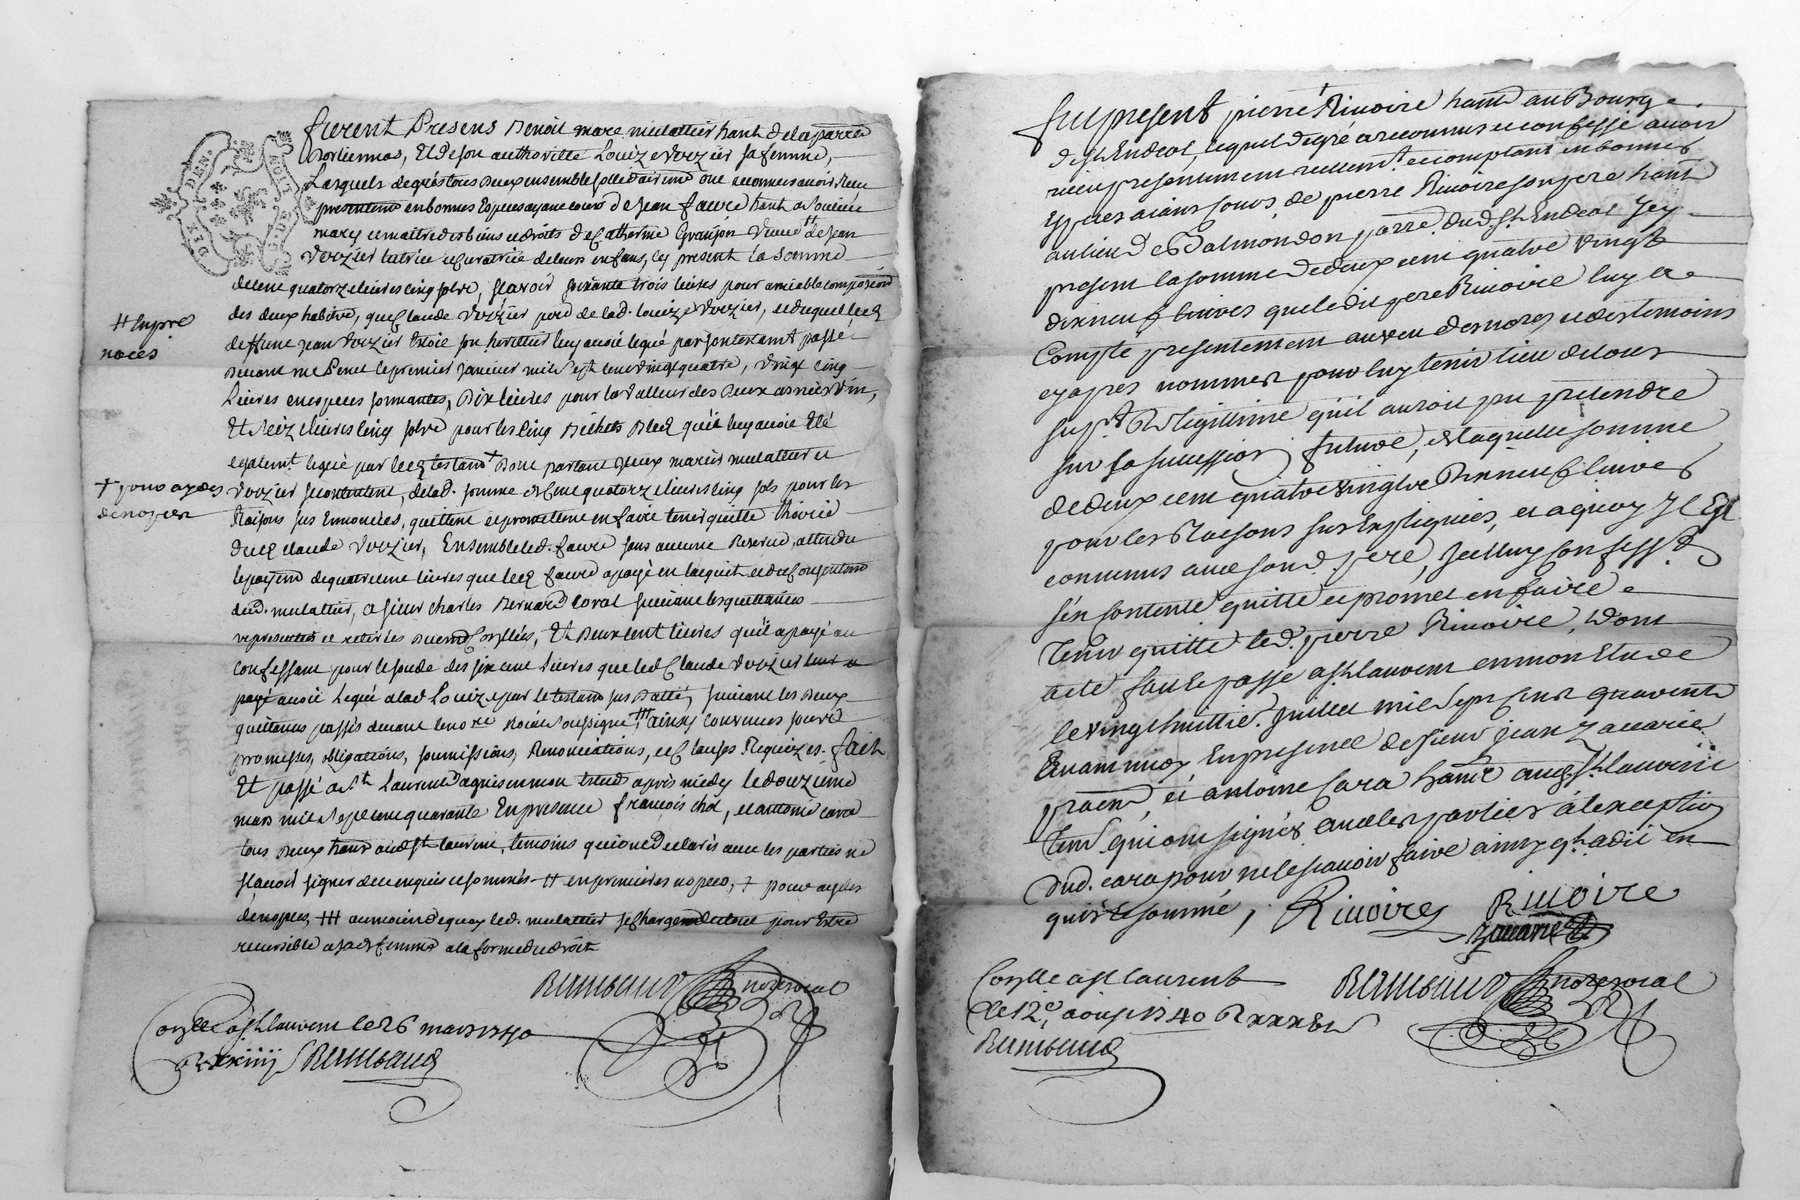 DIX DEN. DIX DEN.
furent Presens Benoit marc mulattier hant de la parre
Et de son authorité Louize Vrozier sa femme,
Lesquels de grés tous deux ensemble sollidairemt ont reconnus avoir Receu
presentemt en bonnes Especes ayans cours de Jean faure hant a
mary et maitre des biens et droits de Catherine Granjon Veuve de Jean
Vrozier tutrice et curatrice de leurs enfans, icy present la somme
de cent quatorze livres cinq sols, sçavoir soixante trois livres pour amiable composition
des deux habits, que Claude Vrozier pere de lad. Louize Vrozier, et duquel led.
deffunt Jean Vrozier Estoit son herittier luy avoit legué par son testamt passé
devant me Penet le premier janvier mil sept cent vingt quatre, vingt cinq
Livres en especes sonnantes, Dix livres pour la valleur des deux asnées vin,
Et seize livres cinq sols pour les cinq Bichets Bled qu'il luy avoit Eté
egalemt legué par led. testamt Dont partant iceux mariés mulattier et
Vrozier se contentent, de lad. somme de Cent quatorze livres cinq sols pour les
Raisons sus Enoncées, quittent et promettent en faire tenir quitte l'hoirie
dud. Claude Vrozier, Ensemble led. faure sans aucune Reserve, attendu
le payemt de quatre cent livres que led. faure a payé en l'acquit et du consentemt
dud. mulattier, a sieur Charles Bernard Coral suivant les quittances
representées et retirées Et Deux cent livres qu'il a payé au
confessant pour le solde des six cent livres que led. Claude Vrozier
payé avoit legué a lad. Louize par le testamt sus datté, suivant les deux
quittances passés devant le nore Roial soussigné, ainsy convenus sous
promesses, obligations, soumissions, Renonciations, et clauses Requizes. fait
Et passé a St Laurent D'agnis en mon Etude après midy le douzième
mars mil sept cent quarante En presence françois et antoine Cara
tous deux hant aud. St Laurent, temoins qui ont Declarés avec les parties ne
sçavoir signer de ce enquis et sommés # en premieres nopces, + pour aydes
de nopces, ### au moien de quoy led. mulattier se charge pour Estre
reversible a sad. femme a la forme du droit
Raimbaud nore roial
Corllé a St Laurent le 26 mars 1740
R xxiiij s Raimbaud
# En pre
noces
+ pour aydes
de nopces
fut present pierre Rivoire hant au Bourg
de St Endeol, lequel de gré a reconnus et confessé avoir
receu presentement reellemt et comptant en bonnes
Especes aians Cours, de pierre Rivoire son pere hant
au lieu de Dalmondon parre dud. St Endeol Icy
present la somme de deux cent quatre vingt
dix neuf livres que led. pere Rivoire luy a
Compté presentement au veu des nores et des temoins
cy apres nommés pour luy tenir lieu de tous
Legitime qu'il auroit pu pretendre
sur sa succession future, de laquelle somme
de deux cent quatre vingt Dix neuf livres
pour les Raisons sus Expliquées, et a quoy Il Est
convenus avec sond. pere, Icelluy confesst
s'en contente quitte et promet en faire
Tenir quitte led. pierre Rivoire, Dont
acte fait et passé a St Laurent en mon Etude
le vingt huittie. Juillet mil sept cent quarante
Avant midy En presence de sieur Jean Zacarie
pracien, et antoine Cara hant aud. St Laurent
tems. qui ont signés avec les parties à l'exception
Dud. Cara pour ne le sçavoir faire ainsy qu'il a dit en
quis et sommé, Rivoire Rivoire
Zacarie
Raimbaud nore roial
Corllé a St Laurent
le 12e aoust 1740 R
Raimbaud